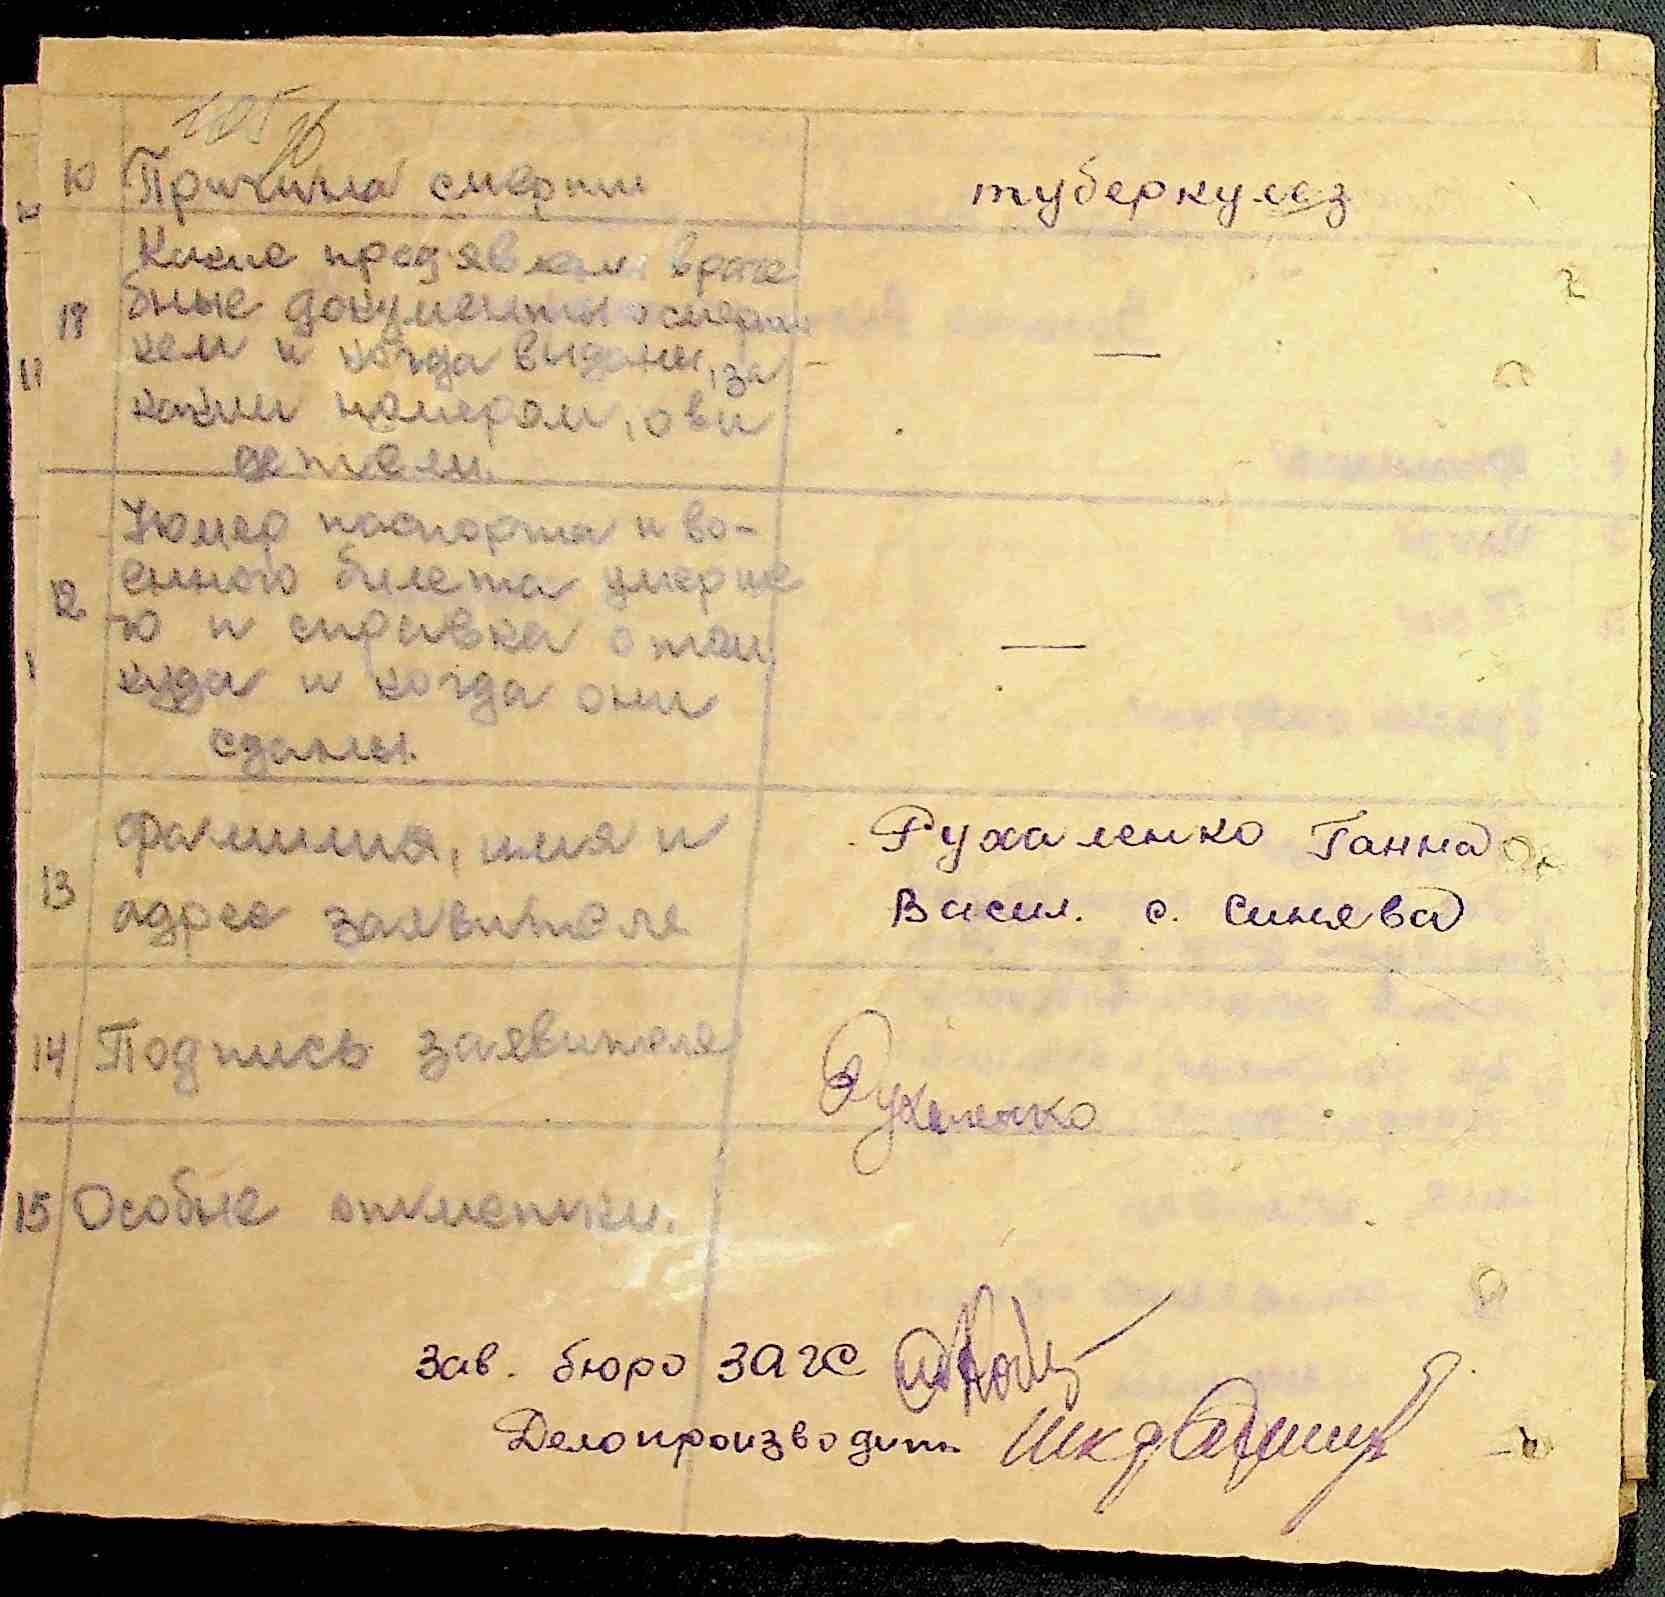 10 Причина смерти туберкулез
Какие предявлен враче
бные документы о смерти
кем и когда выданы, за —
каким номером, ови
детели.
12 Номер паспорта и во-
енного билета умерше
го и справка о том —
куда и когда они
сданы.
13 Фамилия, имя и Рухаленко Ганна
адрес заявителя Васил. с. Синява
14 Подпись заявителя Рухаленко
15 Особые отметки.
Зав. бюро ЗАГС
Делопроизводит.